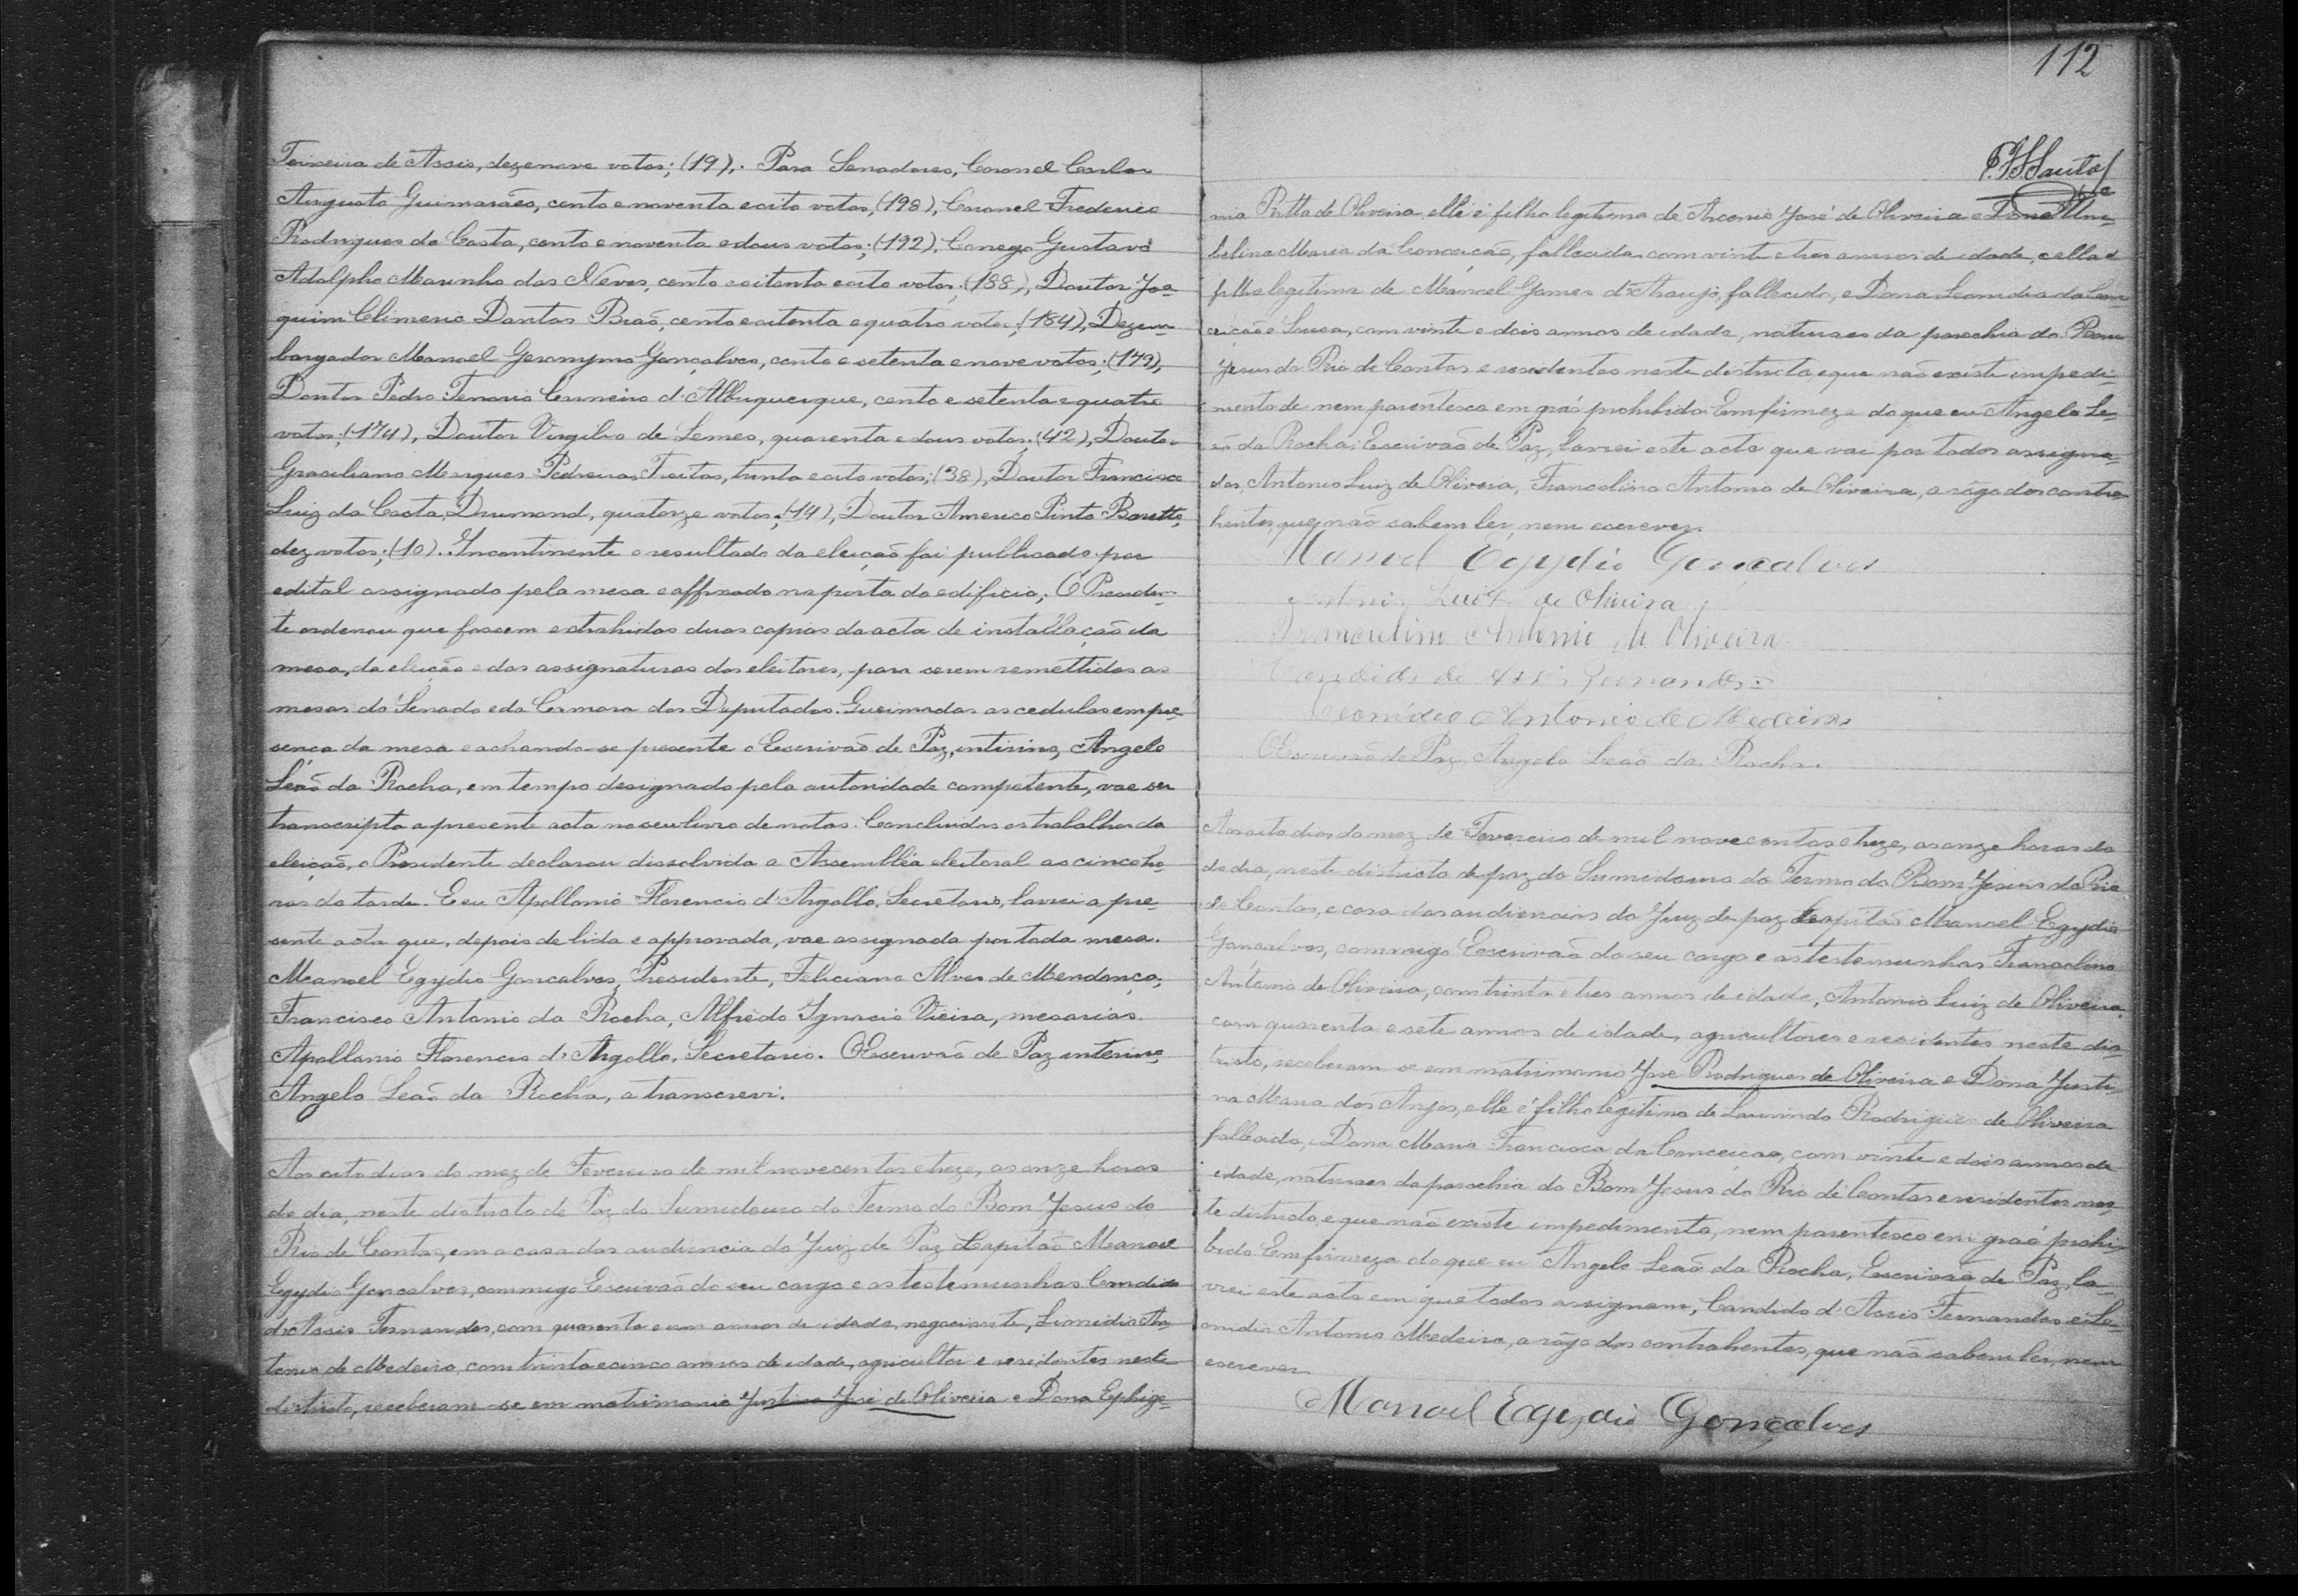 Teixeira de Assis, dezenove votos; (19). Para Senadores, Coronel Carlos
Augusto Guimarães, cento e noventa e oito votos, (198), Coronel Frederico
Rodrigues da Costa, cento e noventa e dous votos; (192), Conego Gustavo
Adolpho Marinho das Neves, cento e oitenta e oito votos; (188), Doutor Joa-
quim Climerio Dantas Bião, cento e oitenta e quatro votos; (184), Dezem-
bargador Manoel Jeronymo Gonçalves, cento e setenta e nove votos; (179),
Doutor Pedro Tenorio Carneiro d'Albuquerque, cento e setenta e quatro
votos; (174), Doutor Virgilio de Lemos, quarenta e dous votos; (42), Doutor
Graciliano Marques Pedreira Freitas, trinta e oito votos; (38), Doutor Francisco
Luiz da Costa Drumond, quatorze votos; (14), Doutor Americo Pinto Barretto,
dez votos; (10). Incontinente o resultado da eleição foi publicado por
edital assignado pela mesa e affixado na porta do edificio; O Presiden-
te ordenou que fossem extrahidas duas copias da acta de installação da
mesa, da eleição e das assignaturas dos eleitores, para serem remettidos as
mesas do Senado e da Camara dos Deputados. Queimadas as cedulas em pre-
sença da mesa e achando-se presente o Escrivão de Paz, intirino, Angelo
Leão da Rocha, em tempo designado pela autoridade competente, vae ser
transcripta a presente acta no seu livro de notas. Concluidos os trabalhos da
eleição, o Presidente declarou dissolvida a Assembléa eleitoral as cinco ho-
ras da tarde. E eu Apollonio Florencio d'Argollo, Secretario, lavrei a pre-
sente acta que, depois de lida e approvada, vae assignada por toda mesa.
Manoel Egydio Goncalves, Presidente, Feliciano Alves de Mendonça,
Francisco Antonio da Rocha, Alfredo Ignacio Vieira, mesarios.
Apollonio Florencio d'Argollo, Secretario. O Escrivão de Paz interino
Angelo Leão da Rocha, a transcrevi.
Aos oito dias do mez de Fevereiro de mil novecentos e treze, as onze horas
do dia, neste districto de Paz do Sumidouro do Termo do Bom Jesus do
Rio de Contas, em a casa das audiencia do Juiz de Paz Capitão Manoel
Egydio Goncalves, commigo Escrivão do seu cargo e as testemunhas Candido
d'Assis Fernandes, com quarenta e um annos de idade, negociante, Leonidio An-
tonio de Medeiro, com trinta e cinco annos de idade, agricultor e residentes neste
districto, receberam-se em matrimonio Justino José de Oliveira e Dona Ephige-
112
nia Ritta de Oliveira, elle é filho legitimo de Arconio José de Oliveira e Dona Um-
belina Maria da Conceição, fallecida, com vinte e tres annos de idade, e ella é
filha legitima de Manoel Gomes d'Araujo, fallecido, e Dona Leonidia da Con-
ceição e Sousa, com vinte e dois annos de idade, naturaes da parochia do Bom
Jesus do Rio de Contas e residentes neste districto, e que não existe impedi-
mento de nem parentesco em gráo prohibido. Em firmeza do que eu Angelo Le-
ão da Rocha, Escrivão de Paz, lavrei este acto que vai por todos assigna-
dos, Antonio Luiz de Oliveira, Francolino Antonio de Oliveira, a rôgo dos contra-
hentes, que não sabem ler, nem escrever.
Manoel Egydio Gonçalves
Antonio Luiz de Oliveira
Francolino Antonio de Oliveira
Candido de Assis Fernandes
Leonidio Antonio de Medeiros
O Escrivão de Paz, Angelo Leão da Rocha.
Aos oito dias do mez de Fevereiro de mil novecentos e treze, as onze horas do
do dia, neste districto de paz do Sumidouro do Termo do Bom Jesus do Rio
de Contas, e casa das audiencias do Juiz de paz Capitão Manoel Egydio
Gonçalves, commigo Escrivão do seu cargo e as testemunhas Francolino
Antonio de Oliveira, com trinta e tres annos de idade, Antonio Luiz de Oliveira,
com quarenta e sete annos de idade, agricultores e residentes neste dis-
tricto, receberam-se em matrimonio José Rodrigues de Oliveira e Dona Justi-
na Maria dos Anjos, elle é filho legitimo de Laurindo Rodrigues de Oliveira
fallecido, Dona Maria Francisca da Conceição, com vinte e dois annos de
idade, naturaes da parochia do Bom Jesus do Rio de Contas e residentes nes-
te districto, e que não existe impedimento, nem parentesco em gráo prohi-
bido. Em firmeza do que eu Angelo Leão da Rocha, Escrivão de Paz, la-
vrei este acto em que todos assignam, Candido d'Assis Fernandes e Le-
onidio Antonio Medeiro, a rôgo dos contrahentes, que não sabem ler, nem
escrever
Manoel Egydio Gonçalves